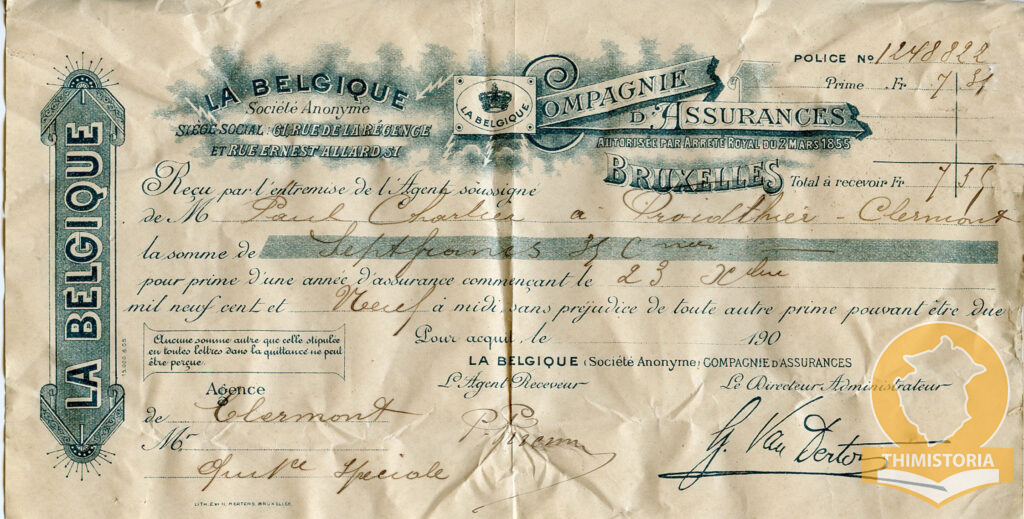 LA BELGIQUE
LA BELGIQUE
Société Anonyme
SIÈGE SOCIAL: 61, RUE DE LA RÉGENCE
ET RUE ERNEST ALLARD 51
LA BELGIQUE
COMPAGNIE
D'ASSURANCES
AUTORISÉE PAR ARRÊTÉ ROYAL DU 2 MARS 1855
BRUXELLES
POLICE No 1248822
Prime .Fr 7 35
Total à recevoir Fr. 7 35
Reçu par l'entremise de l'Agent soussigné
de M Paul Charlier à Froidthier - Clermont
la somme de Sept francs 35 C
pour prime d'une année d'assurance commençant le 23 Xbre
mil neuf cent et Neuf à midi, sans préjudice de toute autre prime pouvant être due
Aucune somme autre que celle stipulée
en toutes lettres dans la quittance ne peut
être perçue.
Pour acquit le 190
LA BELGIQUE (Société Anonyme) COMPAGNIE D'ASSURANCES
L'Agent Receveur
Le Directeur Administrateur
Agence
de Clermont
Mr
Quitce Spéciale
G. Van
LITH. E. & H. MERTENS. BRUXELLES.
THIMISTORIA